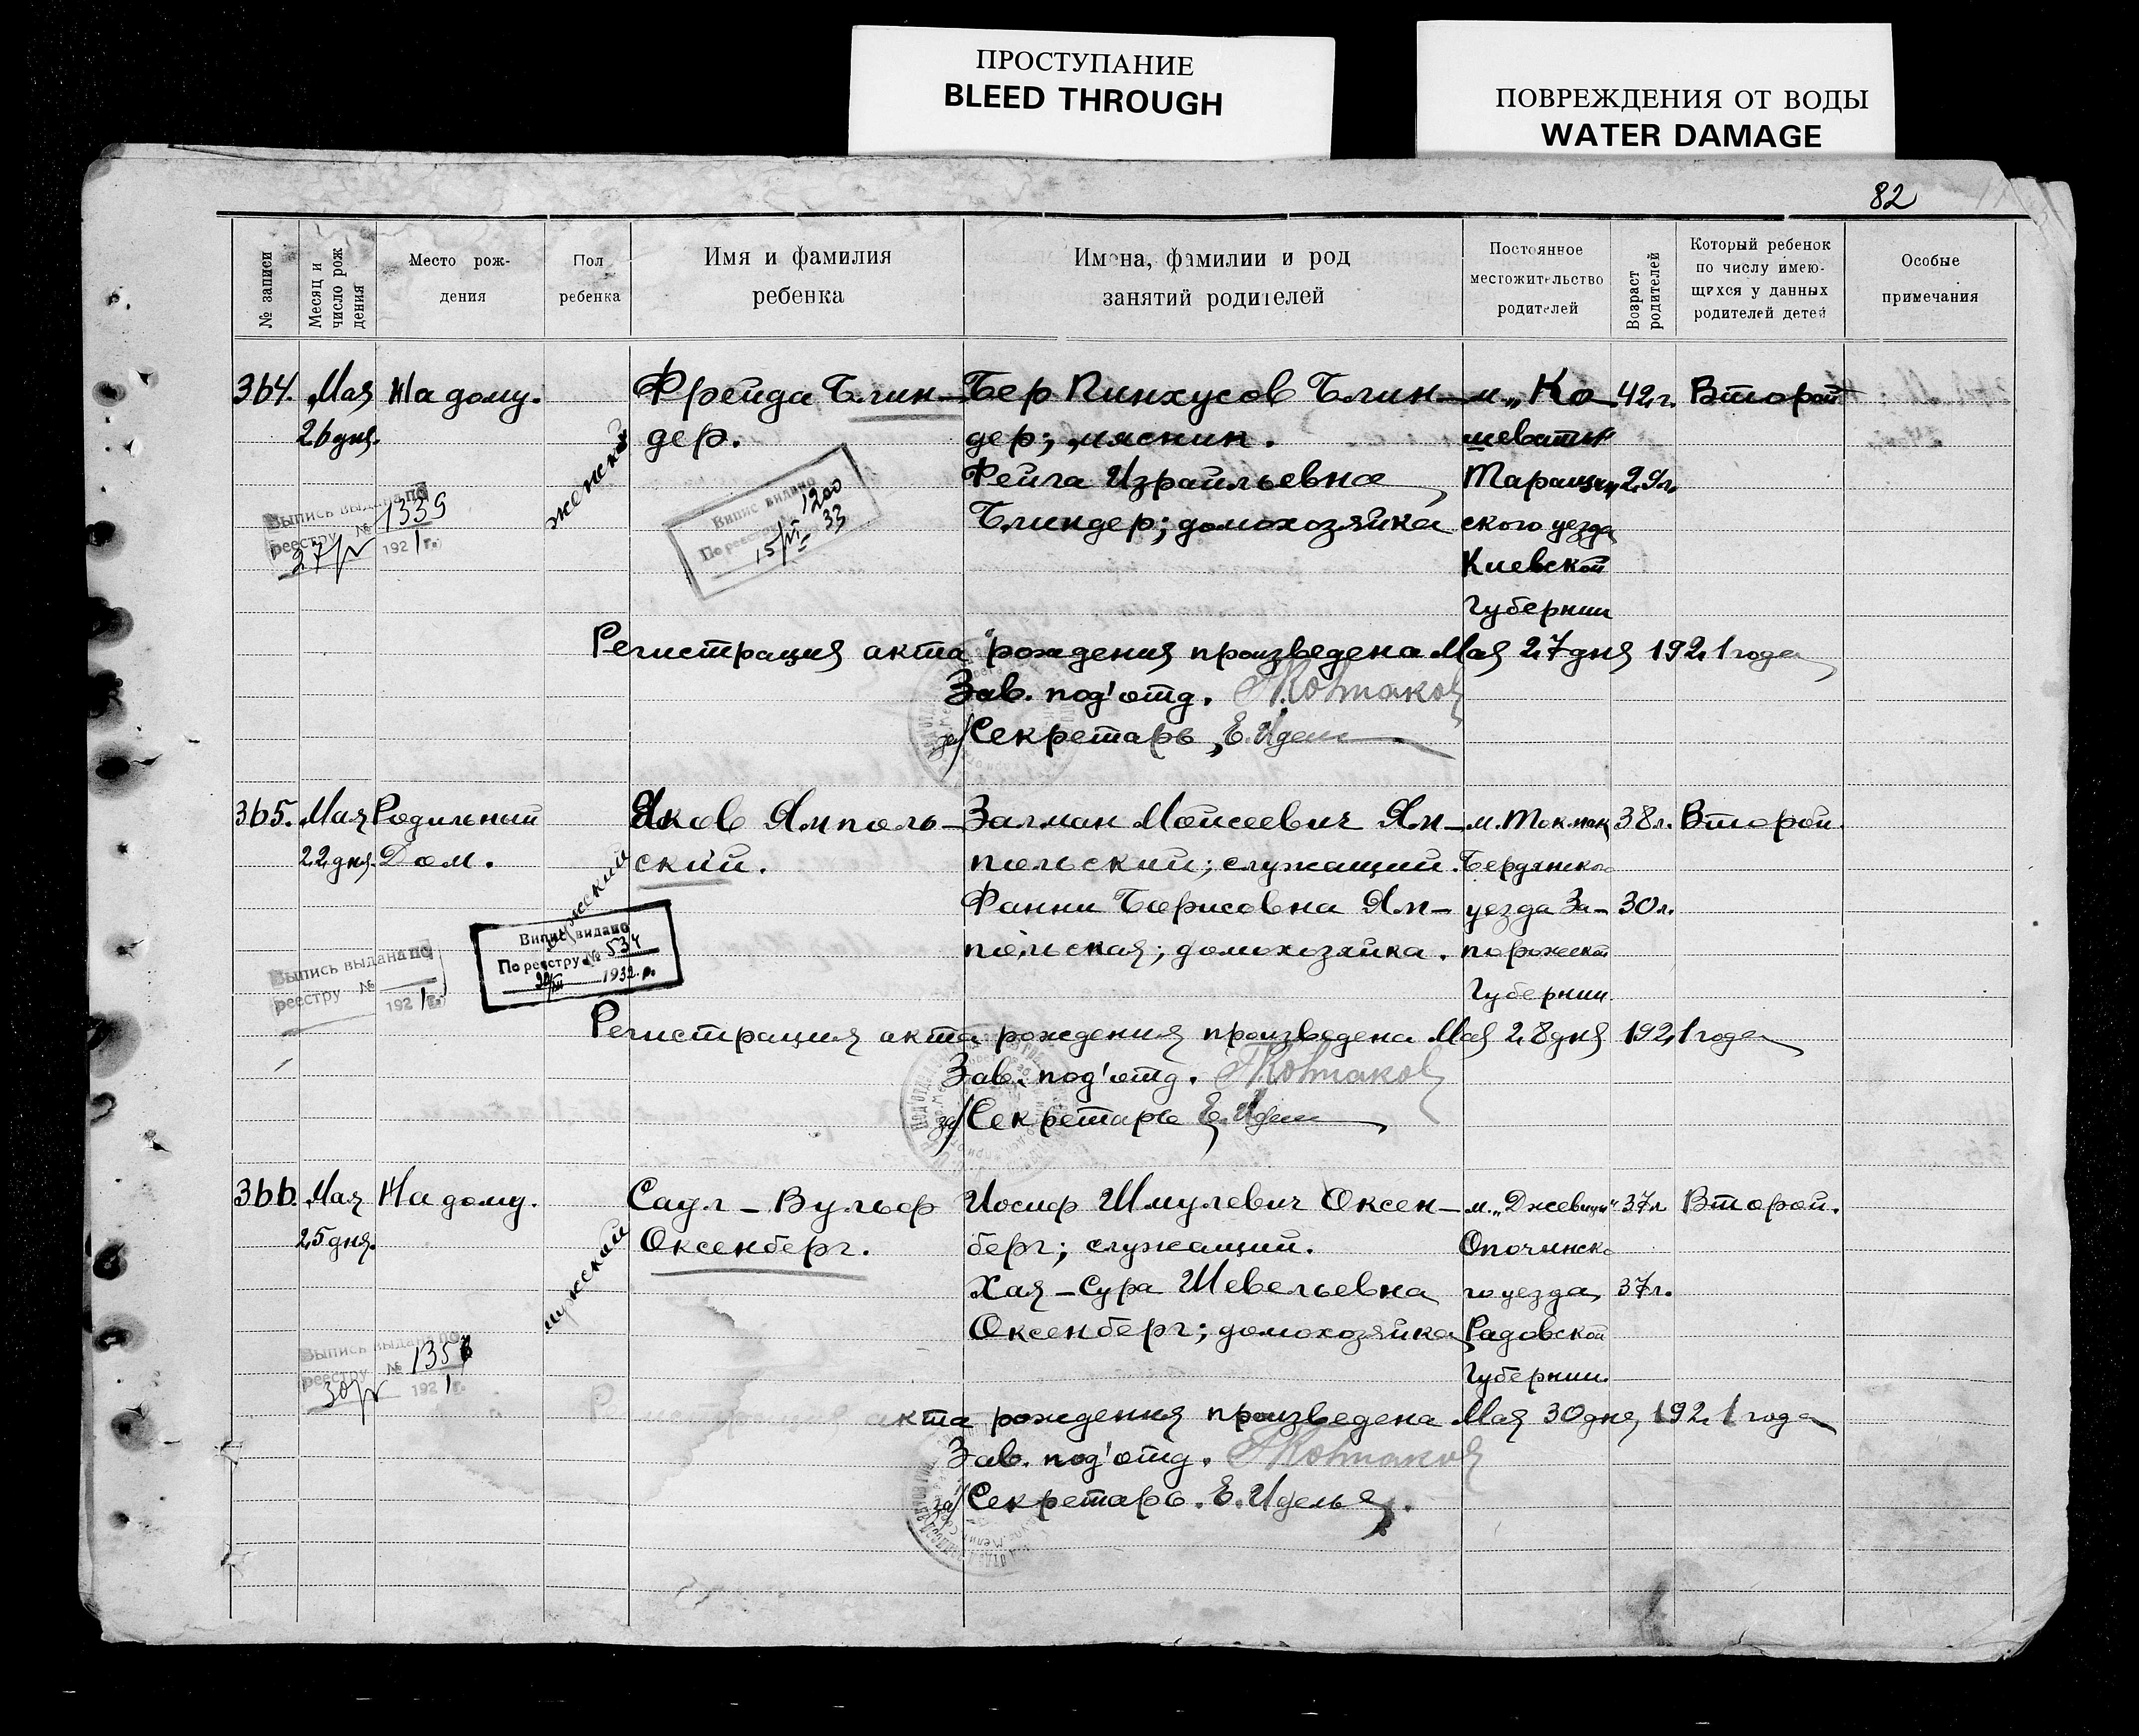 ПРОСТУПАНИЕ
BLEED THROUGH
ПОВРЕЖДЕНИЯ ОТ ВОДЫ
WATER DAMAGE
82
№ записи
Месяц и число рож дения
Место рож-
дения
Пол
ребенка
Имя и фамилия
ребенка
Имена, фамилии и род
занятий родителей
Постоянное
местожительство
родителей
Возраст родителей
Который ребенок
по числу имею-
щихся у данных
родителей детей
Особые
примечания
364. Мая На дому. Фрейда Блин- Бер Пинхусов Блин- м. „Ко- 42 г. Второй
26 дня. женский дер. дер; мяскин. шеваты"
Фейга Израильевна Таращан 29 л.
Блиндер; домохозяйка ского уезда
Киевской
Губернии
Выпись выдана по
реестру № 1339
27/V 1921 г.
Випис видано
По реестру 1200
15/VI 33
Регистрация акта рождения произведена Мая 27 дня 1921 года
Зав. под'отд.
за/Секретарь
365. Мая Родильный Яков Ямполь- Залман Мойсеевич Ям- м. Токмак 38 л. Второй.
22 дня. Дом. мужской ский. польский; служащий. Бердянско
Фанни Борисовна Ям- уезда За- 30 л.
польская; домохозяйка. порожской
Губернии.
Випис видано
По реестру № 534
1932 р.
Выпись выдана по
реестру №
1921 г.
Регистрация акта рождения произведена Мая 28 дня 1921 года
Зав. под'отд.
за/Секретарь
366. Мая На дому. Саул-Вульф Иосиф Шмулевич Оксен- м. „Джевица" 37 л Второй.
25 дня. мужской Оксенберг. берг; служащий. Опочинско
Хая-Сура Шевельевна го уезда, 37 л.
Оксенберг; домохозяйка Радовской
Губернии.
Выпись выдана по
реестру № 135
30/V 1921 г.
акта рождения произведена Мая 30 дня, 1921 года
Зав. под'отд.
за/Секретарь.